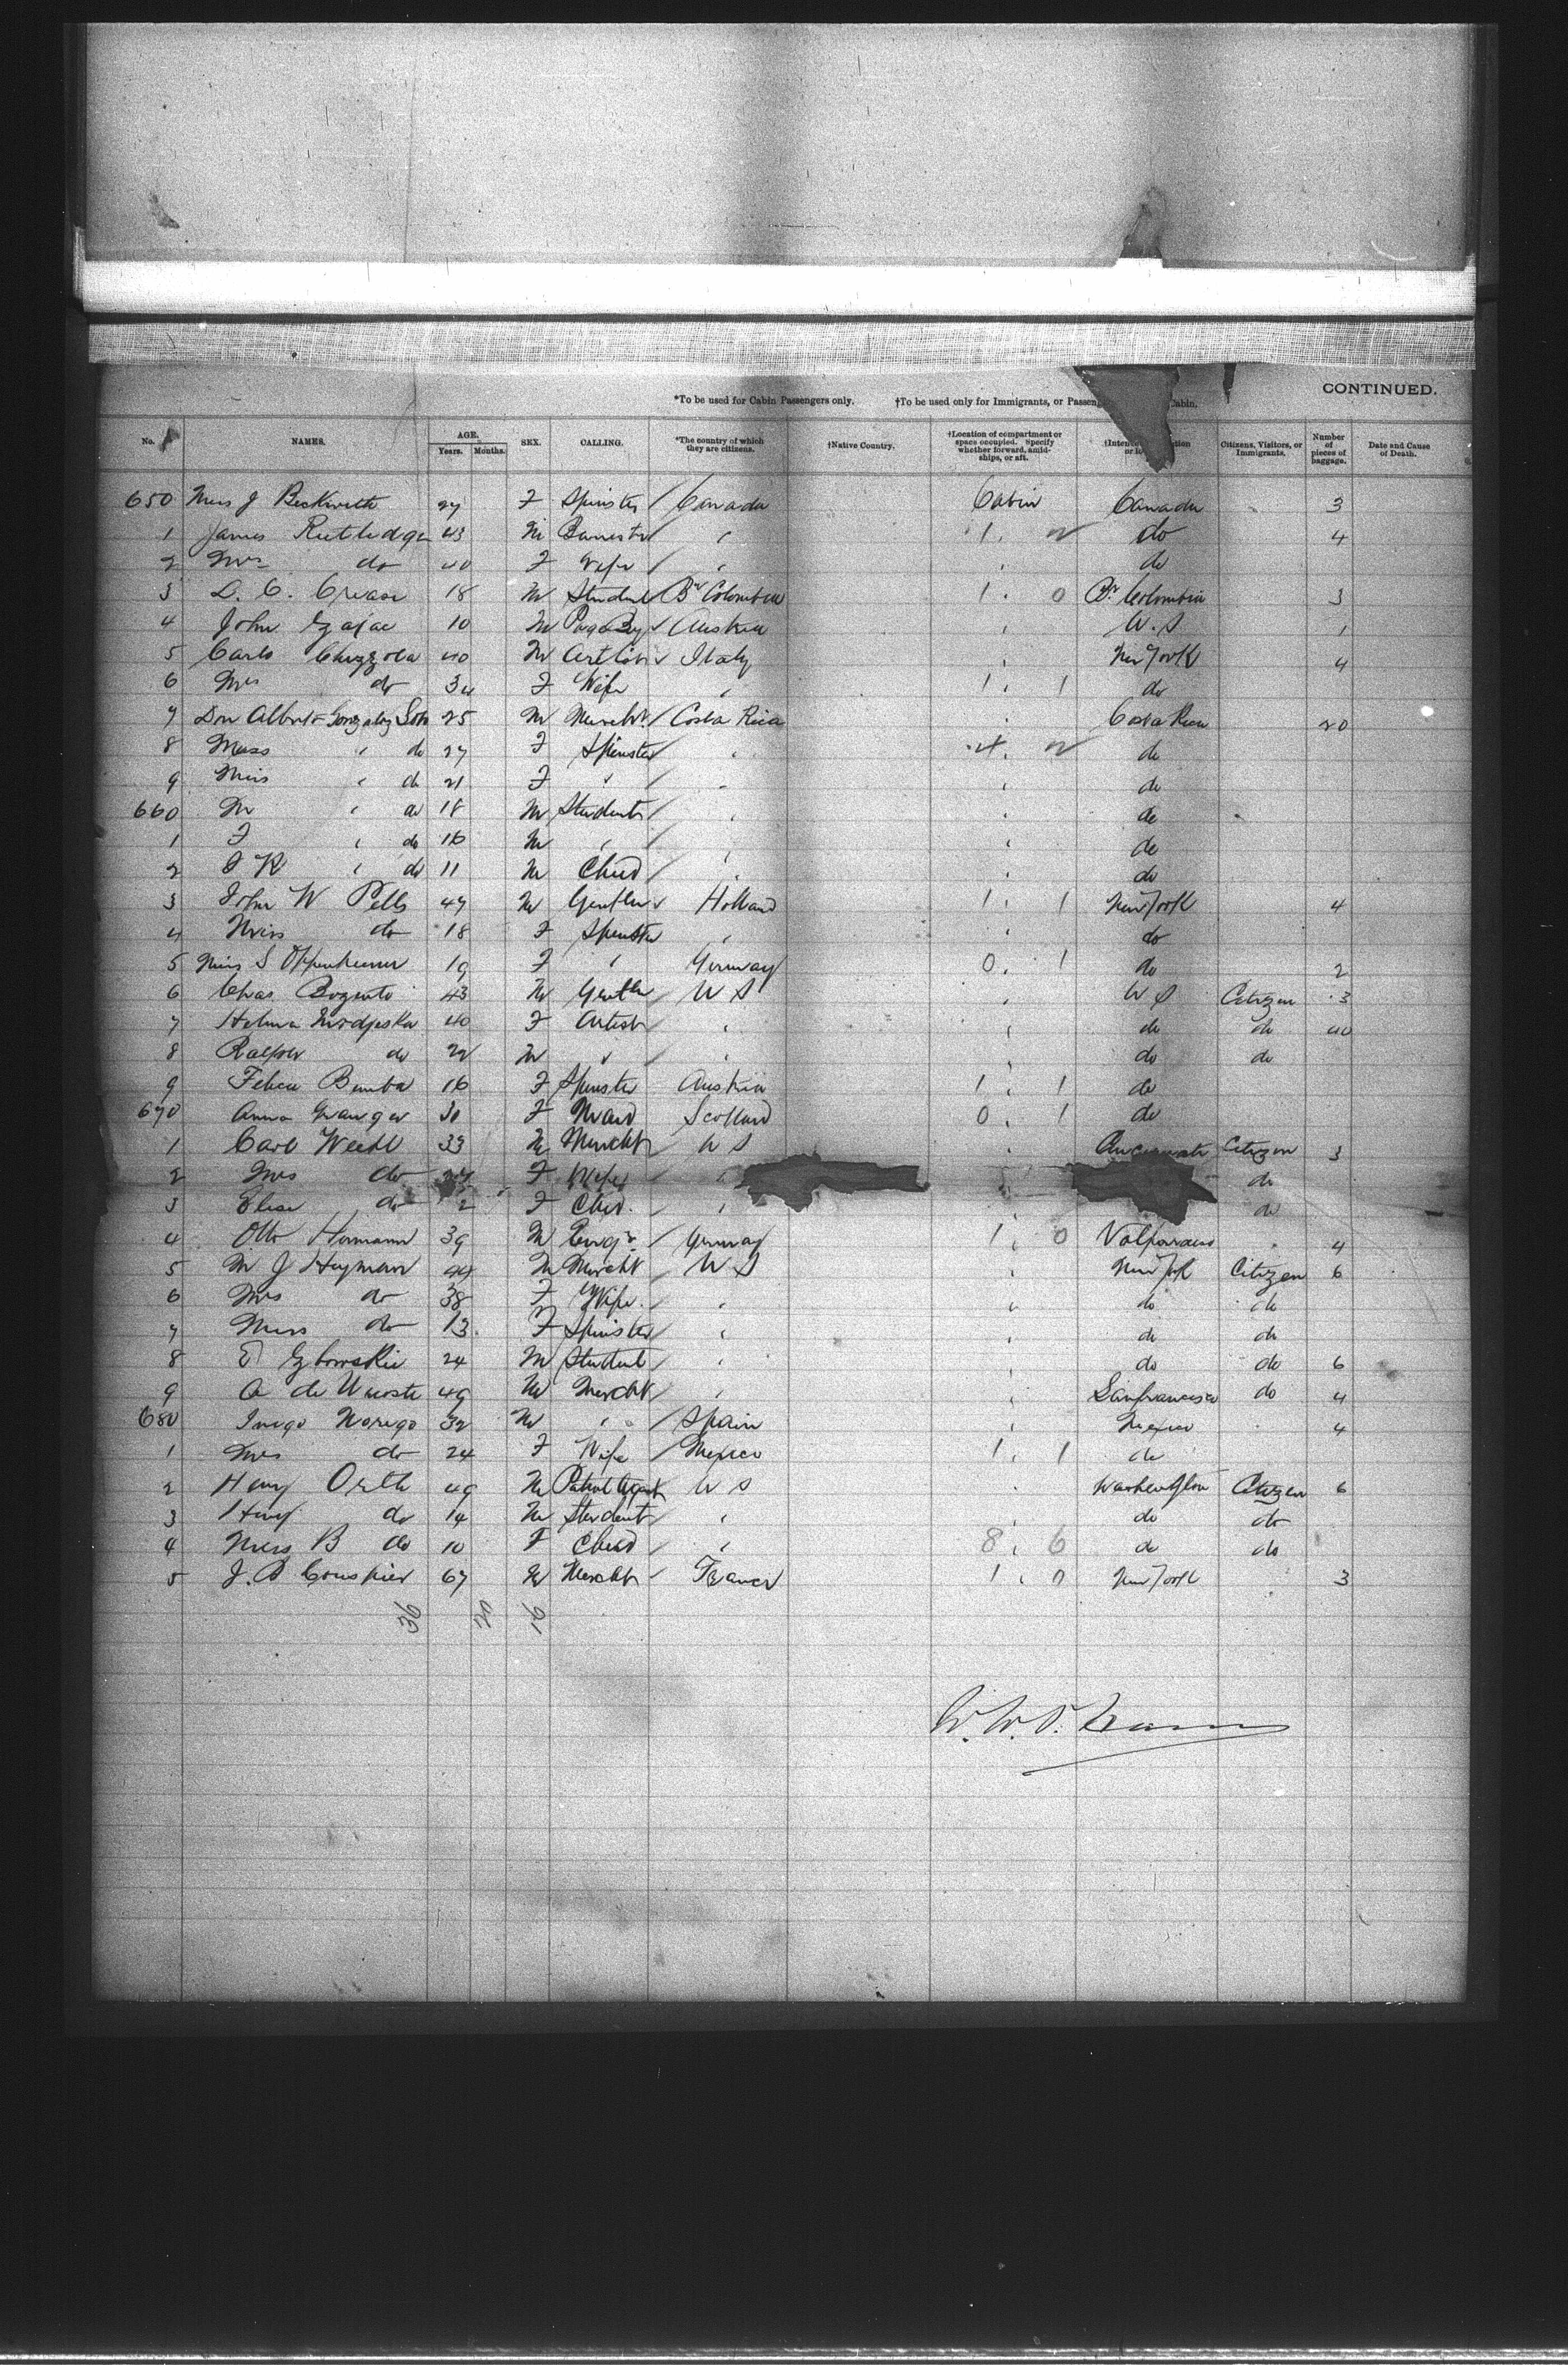 CONTINUED.
*To be used for Cabin Passengers only. †To be used only for Immigrants, or Passeng Cabin.
No. NAMES. AGE. Years. Months. SEX. CALLING. *The country of which they are citizens. †Native Country. †Location of compartment or space occupied. Specify whether forward, amidships, or aft. Citizens, Visitors, or Immigrants. Number of pieces of baggage. Date and Cause of Death.
650 Miss J Beckwith 27 F Spinster / Canada Cabin Canada 3
1 James Rutledge 43 M Barrister / " 1 . 2 do 4
2 Mrs do 40 F Wife / " do
3 D. C. Crease 18 M Student Br Colombia 1 . 0 Br Colombia 3
4 John 10 M Austria " U.S 1
5 Carlo Chizzola 40 M Italy " New York 4
6 Mrs do 34 F Wife " 1 . 1 do
7 Don Alberto Gonzalez Soto 25 M Mercht / Costa Rica " Costa Rica 20
8 Miss " do 27 F Spinster / " 4 . 2 do
9 Miss " do 21 F " / " " do
660 M " do 18 M Students / " " do
1 F " do 16 M " / " " do
2 J R " do 11 M Child / " " do
3 John W Pells 47 M Gentlm Holland 1 . 1 New York 4
4 Miss do 18 F Spinster " " do
5 Miss S Oppenheimer 19 F " Germany 0 . 1 do 2
6 Chas Bozenta 43 M Gentlm / U S " U S Citizen 3
7 Helena Modjeska 40 F Artist / " " do do 40
8 Ralph do 22 M " / " " do do
9 Felicie Benda 16 F Spinster Austria 1 . 1 do
670 Anna Granger 30 F Maid Scotland 0 . 1 do
1 Carl Weihl 33 M Mercht / U S " Citizen 3
2 Mrs do F Wife / do
3 Elise do 2 F Child / " " do
4 Otto Hermann 39 M Engr / Germany 1 . 0 Valparaiso 4
5 M J Heyman 44 M Mercht / U S " New York Citizen 6
6 Mrs do 38 F Wife / " " do do
7 Miss do 13 F Spinster / " " do do
8 E 24 M Student / " " do do 6
9 A de 49 M Mercht / " " Sanfrancisco do 4
680 Inigo Noriego 32 M " / Spain " Mexico 4
1 Mrs do 24 F Wife / Mexico 1 . 1 do
2 Henry Orth 49 M Patent Agent U S " Washington Citizen 6
3 Henry do 14 M Student / " " do do
4 Miss B do 10 F Child / " 8 . 6 do do
5 J. B 67 M Mercht France 1 . 0 New York 3
36 20 16